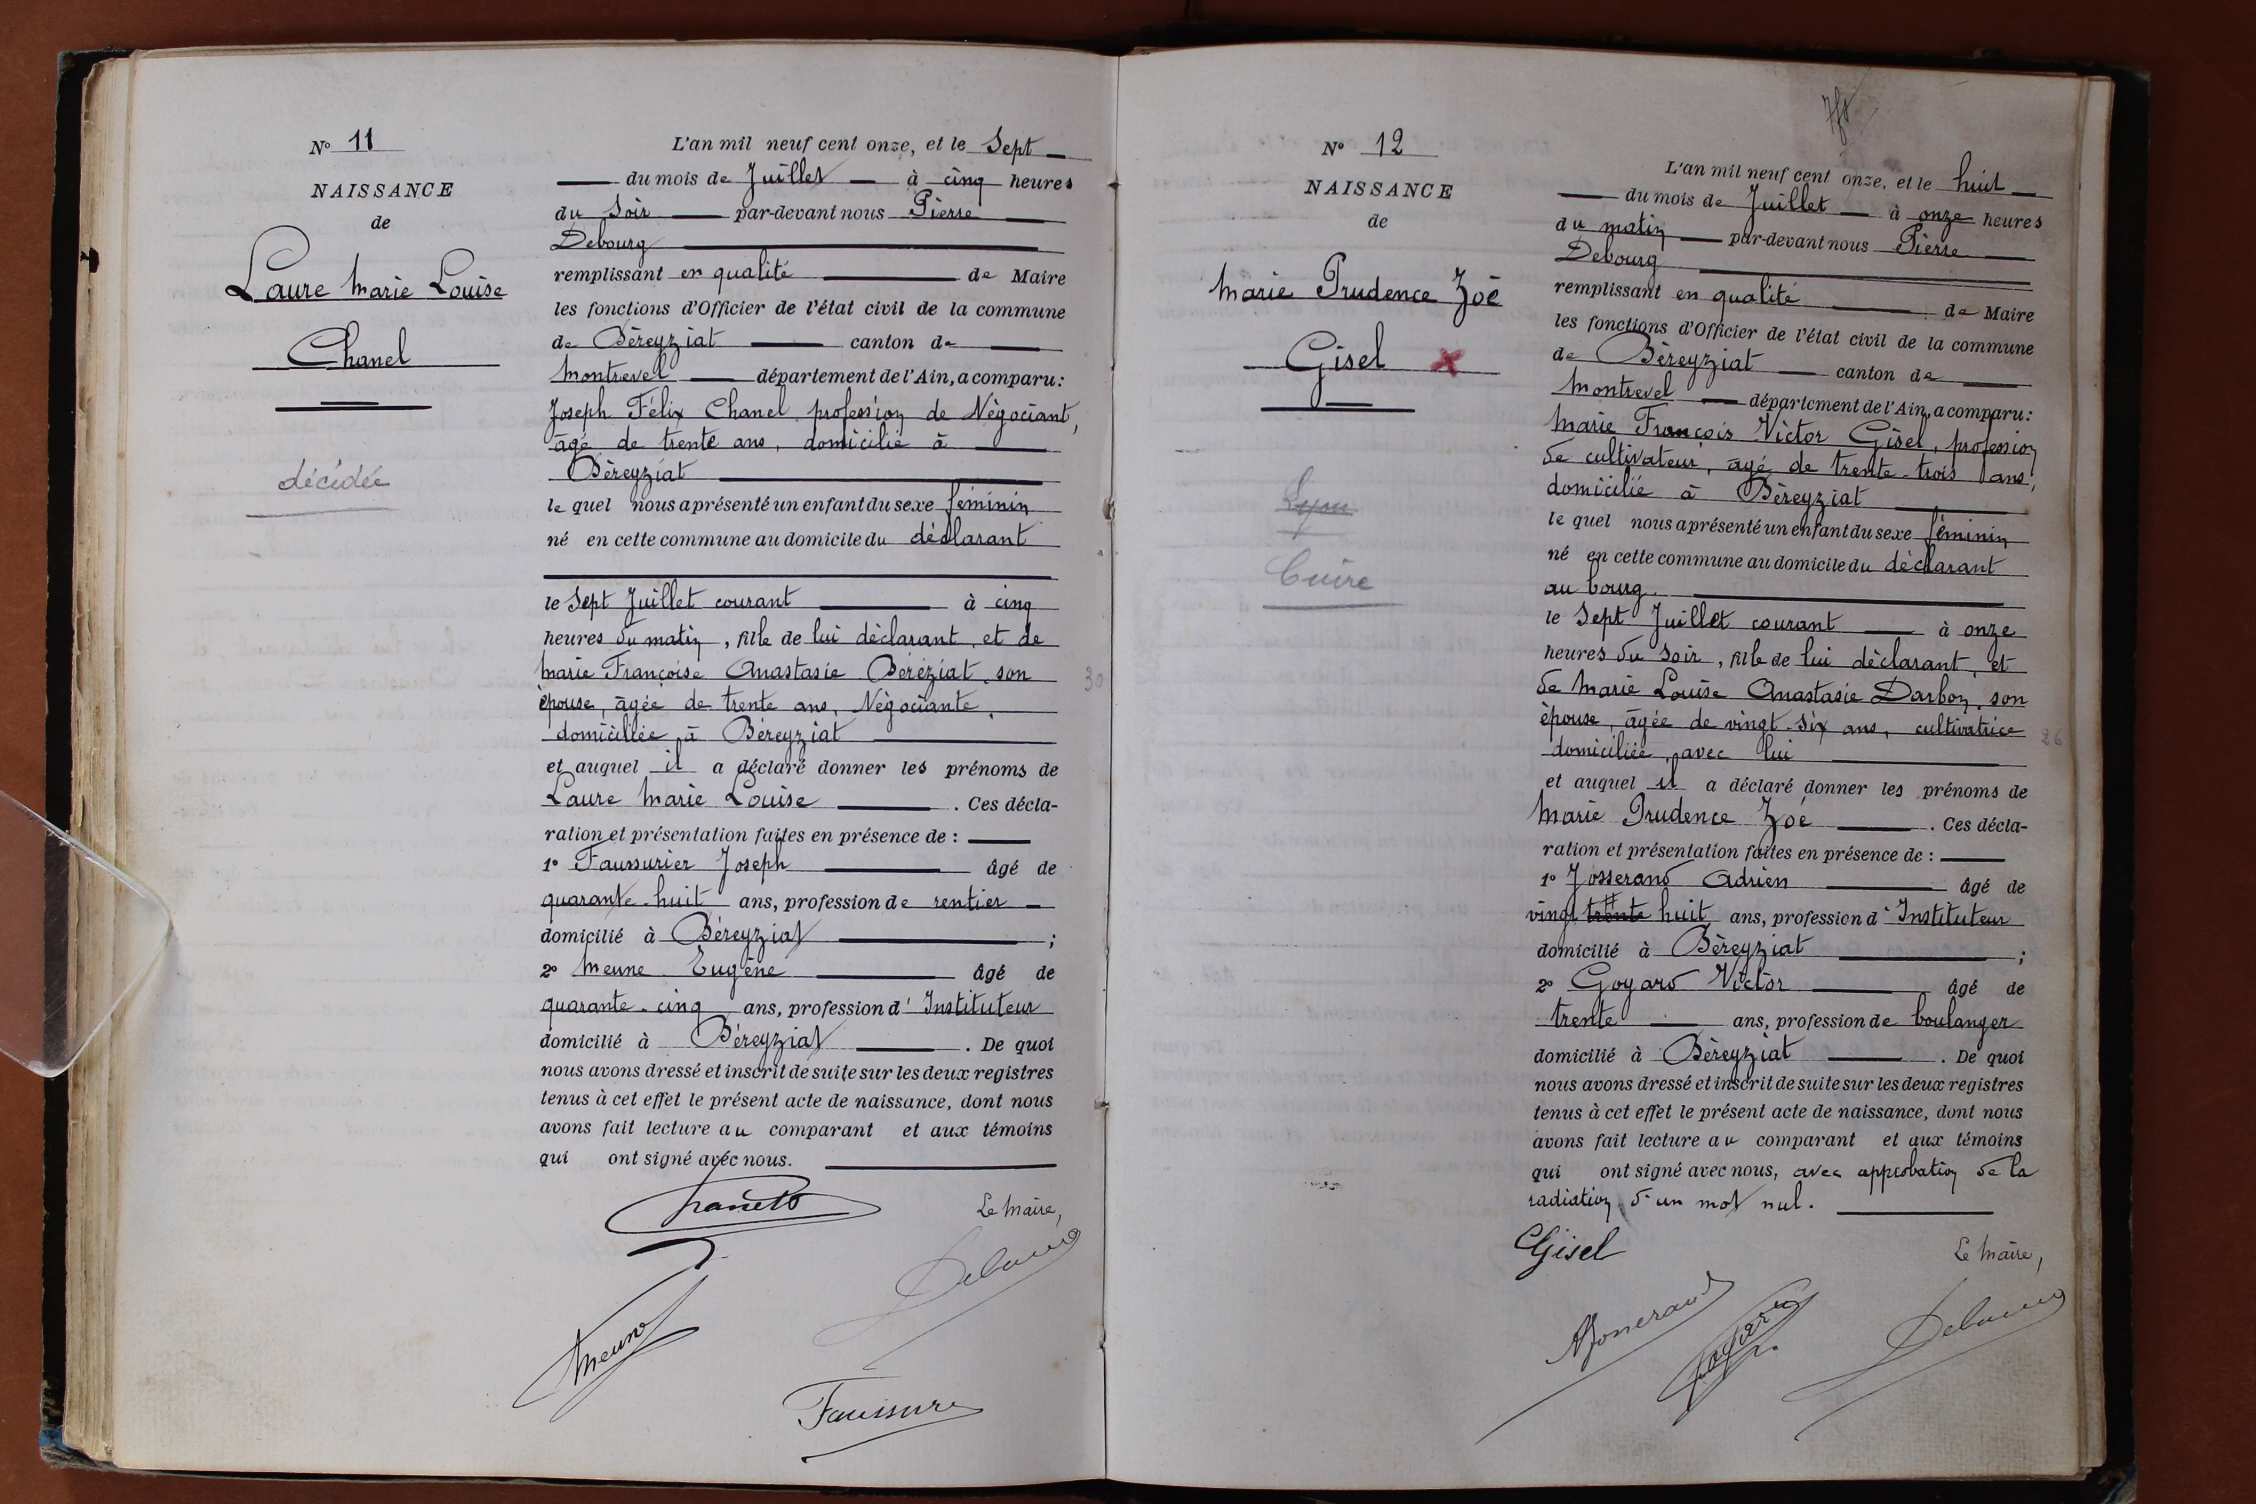 N° 11
NAISSANCE
de
Laure Marie Louise
Chanel
décédée
L'an mil neuf cent onze, et le Sept
du mois de Juillet à cinq heures
du Soir par-devant nous Pierre
Debourg
remplissant en qualité de Maire
les fonctions d'Officier de l'état civil de la commune
de Béreyziat canton de
Montrevel département de l'Ain, a comparu:
Joseph Félix Chanel profession de Négociant,
âgé de trente ans, domicilié à
Béreyziat
le quel nous a présenté un enfant du sexe féminin
né en cette commune au domicile du déclarant
le Sept Juillet courant à cinq
heures du matin, fille de lui déclarant, et de
Marie Françoise Anastasie Béréziat, son
épouse, âgée de trente ans, Négociante,
domiciliée à Béreyziat
et auquel il a déclaré donner les prénoms de
Laure Marie Louise. Ces décla-
ration et présentation faites en présence de :
1° Faussurier Joseph âgé de
quarante-huit ans, profession de rentier
domicilié à Béreyziat ;
2° Meune Eugène âgé de
quarante-cinq ans, profession d'Instituteur
domicilié à Béreyziat. De quoi
nous avons dressé et inscrit de suite sur les deux registres
tenus à cet effet le présent acte de naissance, dont nous
avons fait lecture au comparant et aux témoins
qui ont signé avec nous.
Le Maire,
Meune
Debourg
30
N° 12
NAISSANCE
de
Marie Prudence Zoé
Gisel
Lyon
Cuire
L'an mil neuf cent onze, et le huit
du mois de Juillet à onze heures
du matin par-devant nous Pierre
Debourg
remplissant en qualité de Maire
les fonctions d'Officier de l'état civil de la commune
de Béreyziat canton de
Montrevel département de l'Ain, a comparu:
Marie François Victor Gisel, profession
de cultivateur, âgé de trente trois ans,
domicilié à Béreyziat
le quel nous a présenté un enfant du sexe féminin
né en cette commune au domicile du déclarant
au bourg
le Sept Juillet courant à onze
heures du Soir, fille de lui déclarant, et
de Marie Louise Anastasie Darbon, son
épouse, âgée de vingt-six ans, cultivatrice
domiciliée avec lui
et auquel il a déclaré donner les prénoms de
Marie Prudence Zoé. Ces décla-
ration et présentation faites en présence de :
1° Josserand Adrien âgé de
vingt trente huit ans, profession d'Instituteur
domicilié à Béreyziat ;
2° Goyard Victor âgé de
trente ans, profession de boulanger
domicilié à Béreyziat. De quoi
nous avons dressé et inscrit de suite sur les deux registres
tenus à cet effet le présent acte de naissance, dont nous
avons fait lecture au comparant et aux témoins
qui ont signé avec nous, avec approbation de la
radiation d'un mot nul.
Gisel
Le Maire,
AJosserand
Goyard
Debourg
26